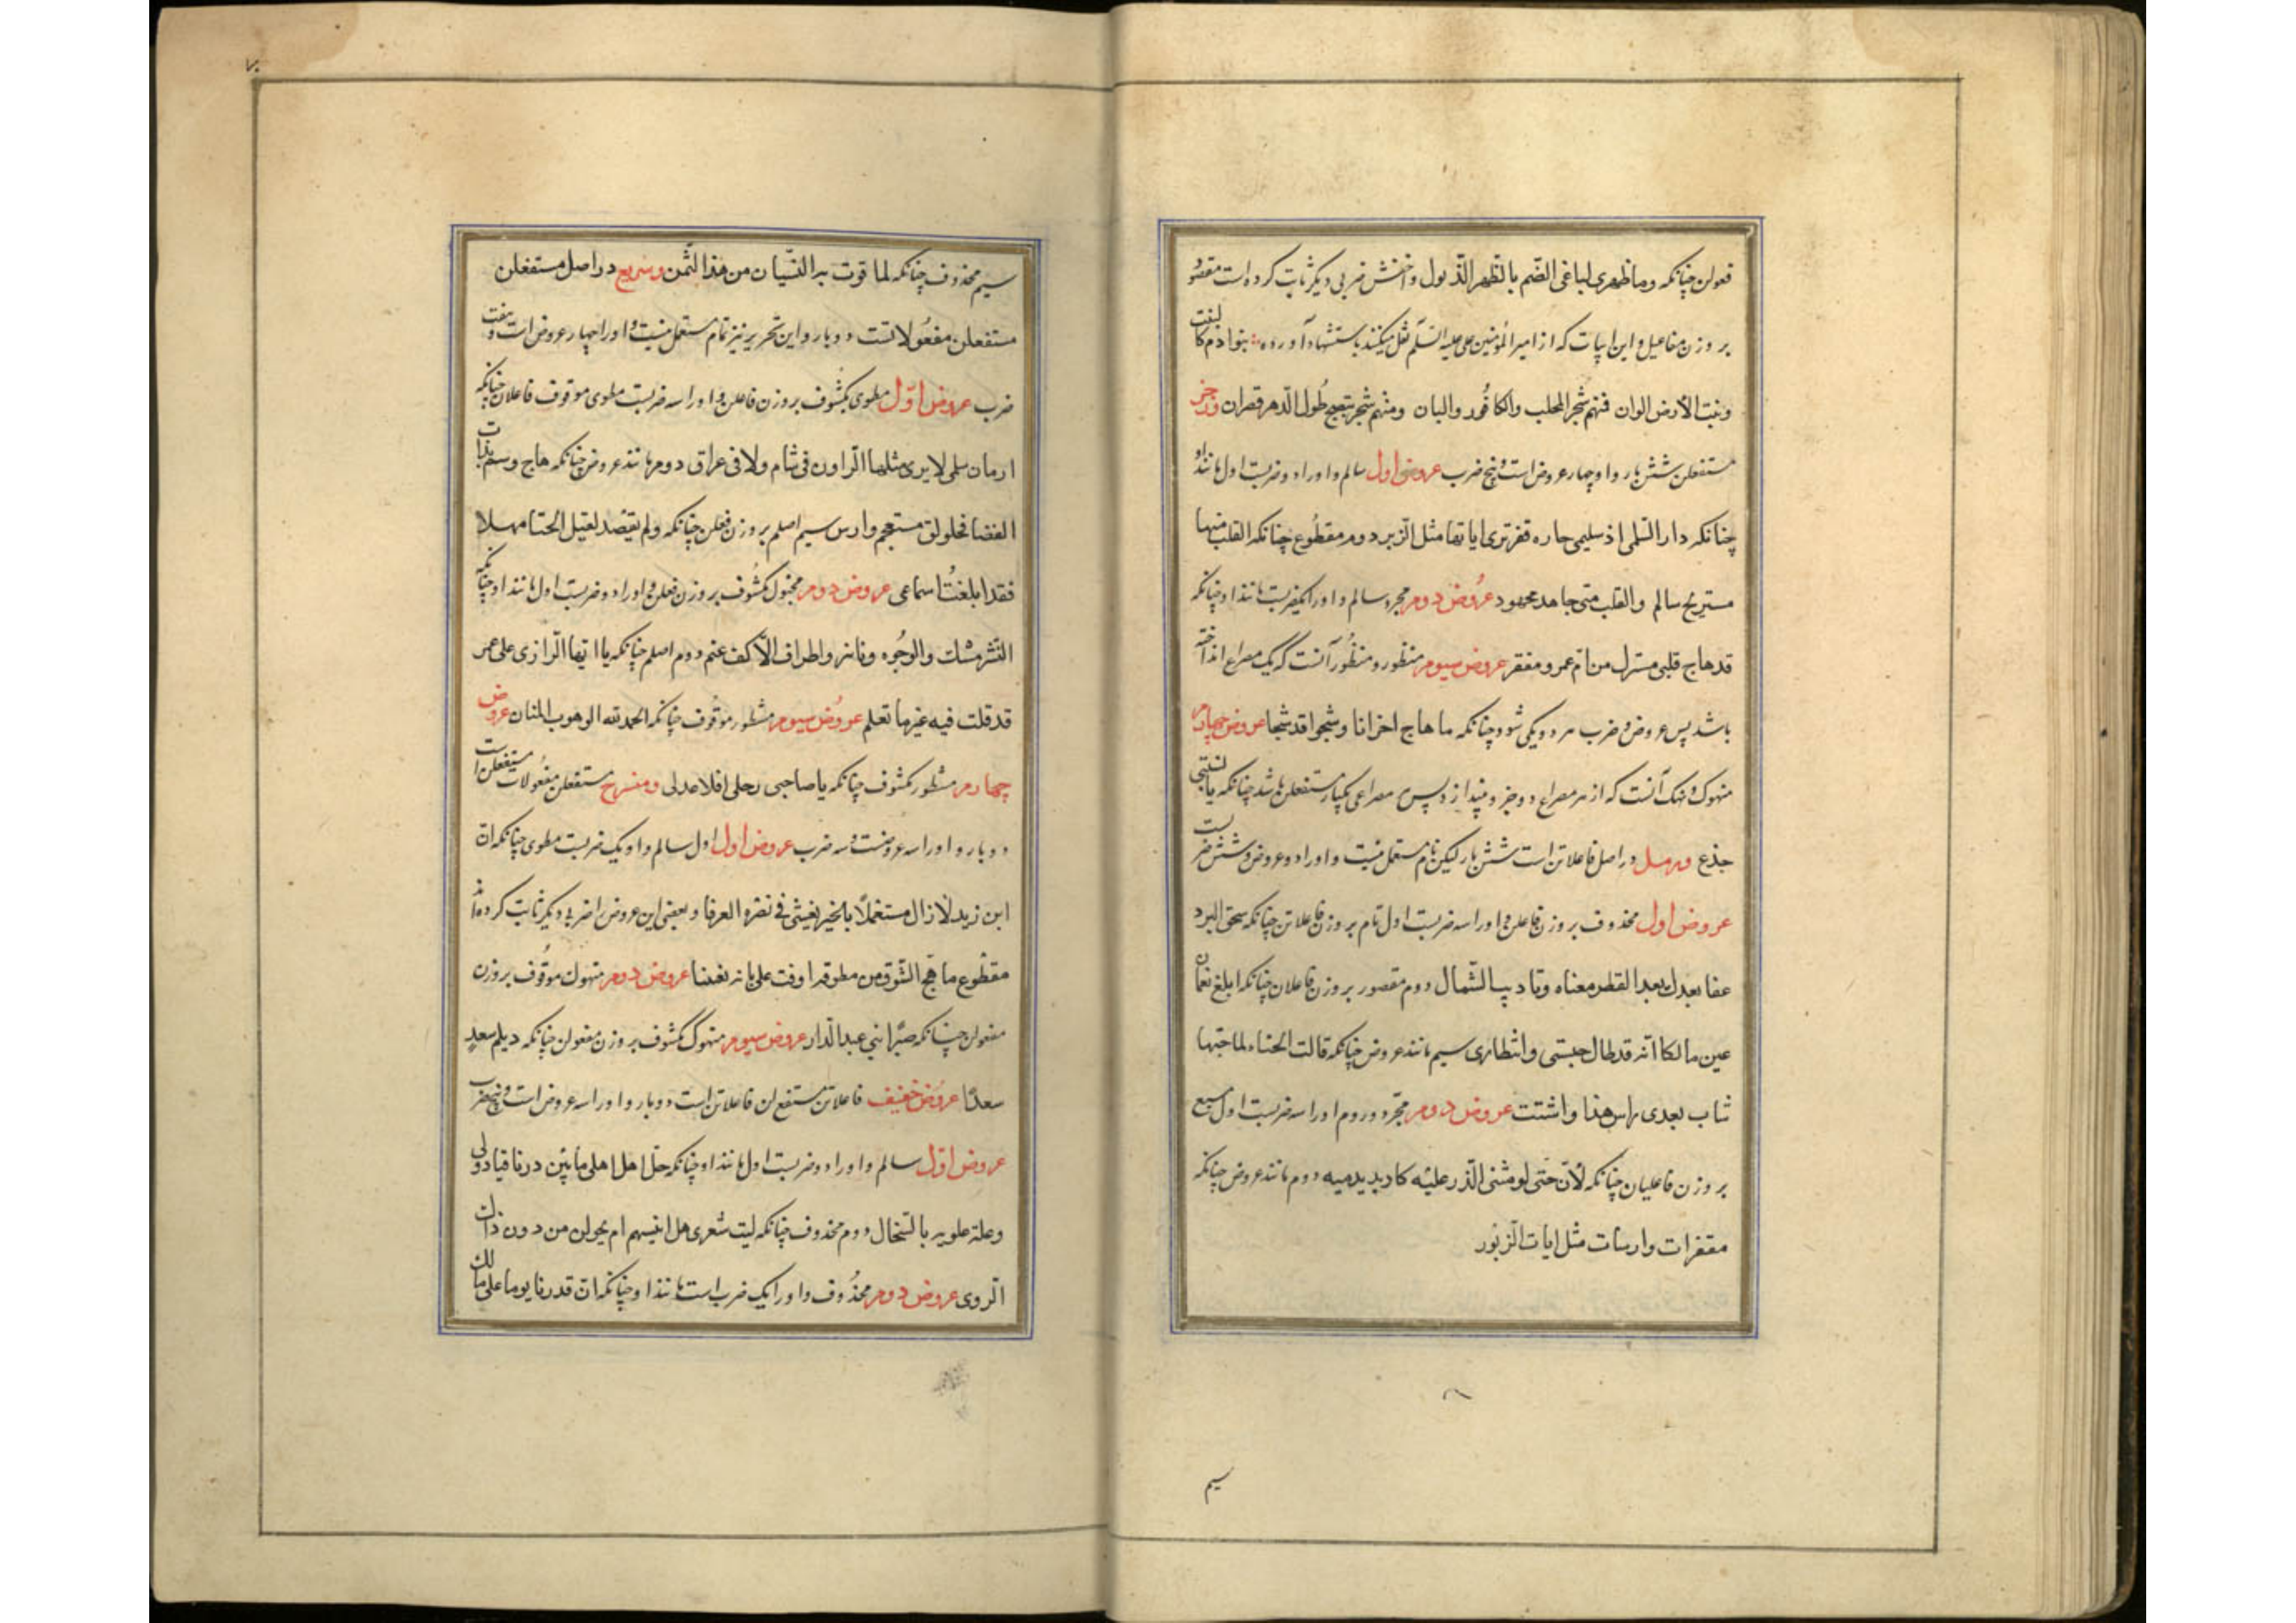 فعولن چنانکه وما ظهری لباغی الضّیم بالظّهر الذّلول و اخفش ضربی دیگر ثابت کرده است مقصور
بر وزن مفاعیل و این ابیات که از امیر المؤمنین علی علیه السّلم نقل میکنند باستشهاد آورده بنوا آدم کا لنبت
ونبت الأرض الوان فنهم شجر المحلب والکافور والبان ومنهم شجر ینبع طول الدّهر قطران و رجز
مستفعلن شش بار و او چهار عروض است و پنج ضرب عروض اول سالم و او را دو ضربست اول مانند او
چنانکه دار السّلمی اذ سلیمی جاره قفر تری ایاتها مثل الزّبر دوم مقطوع چنانکه القلب منها
مستریح سالم والقلب منّی جاهد مجهود عروض دوم مجزو سالم و او را یکضربست مانند او چنانکه
قد هاج قلبی منزل من امّ عمرو مقفر عروض سیوم مشطور و مشطور آنست که یک مصراع انداخته
باشد پس عروض و ضرب هر دو یکی شود چنانکه ما هاج احزانا وشجوا قد شجا عروض چهارم
منهوک و نهک آنست که از هر مصراع دو جزو بیندازد پس مصراعی یکبار مستفعلن باشد چنانکه یا لیتنی
جذع و رمل در اصل فاعلاتن است شش بار لیکن تام مستعمل نیست و او را دو عروض و شش ضربست
عروض اول محذوف بر وزن فاعلن و او را سه ضربست اول تام بر وزن فاعلاتن چنانکه سحق البرد
عفا بعدک بعد القطر مغناه وتادیب الشّمال دوم مقصور بر وزن فاعلان چنانکه ابلغ نعمان
عین مالکا انّه قد طال حبسی وانتظاری سیم مانند عروض چنانکه قالت الخنساء لما جئتها
شاب بعدی راس هذا واشتت عروض دوم مجزو و او را سه ضربست اول مسبع
بر وزن فاعلیان چنانکه لأن حتی لو مشی الذّر علیه کاد یدمیه دوم مانند عروض چنانکه
مقفرات دارسات مثل ایات الزّبور
سیم
۷۰
سیم محذوف چنانکه لما قرت به العینان من هذا الثّمن و سریع در اصل مستفعلن
مستفعلن مفعولاتست دو بار و این بحر نیز تمام مستعمل نیست و او را چهار عروض است و هفت
ضرب عروض اوّل مطوی مکشوف بر وزن فاعلن و او را سه ضربست مطوی موقوف فاعلان چنانکه
ازمان سلمی لا یری مثلها الّراون فی شام ولا فی عراق دوم مانند عروض چنانکه هاج رسم بذات
الغضا مخلولق مستعجم دارس سیم اصلم بر وزن فعلن چنانکه ولم یقصد لقیل الخنا مهلا
فقد ابلغت اسماعی عروض دوم مخبول مکشوف بر وزن فعلن و او را دو ضربست اول مانند او چنانکه
النّشر مسک والوجوه دنانیر واطراف الأکف عنم دوم اصلم چنانکه یا ایّها الّزاری علی عمر
قد قلت فیه غیر ما تعلم عروض سیوم مشطور موقوف چنانکه الحمد لله الوهوب المنان عروض
چهارم مشطور مکشوف چنانکه یا صاحبی رحلی اقلا عذلی و منسرح مستفعلن مفعولات مستفعلن است
دو بار و او را سه عروضست و سه ضرب عروض اول اول سالم و او یک ضربست مطوی چنانکه انّ
ابن زید لا زال مستعملًا بالخیر یفشی فی مصره العرفا و بعضی این عروض را ضربی دیگر ثابت کرده‌اند
مقطوع ما هیّج الشّوق من مطوقه اوفت علی بانه تغنینا عروض دوم منهوک موقوف بر وزن
مفعولن چنانکه صبرًا بنی عبد الّدار عروض سیوم منهوک مکشوف بر وزن مفعولن چنانکه ویلم سعدٍ
سعدًا عروض خفیف فاعلاتن مستفع لن فاعلاتن است دو بار و او را سه عروض است و پنج ضرب
عروض اوّل سالم و او را دو ضربست اول مانند او چنانکه حلّ اهلی ما بین درنا فبادولی
وحلّت علویه بالسّخال دوم محذوف چنانکه لیت شعری هل ثم هل اتینهم ام یحولن من دون ذاک
الّردی عروض دوم محذوف و او را یک ضرب است مانند او چنانکه ان قدرنا یوما علی مالک